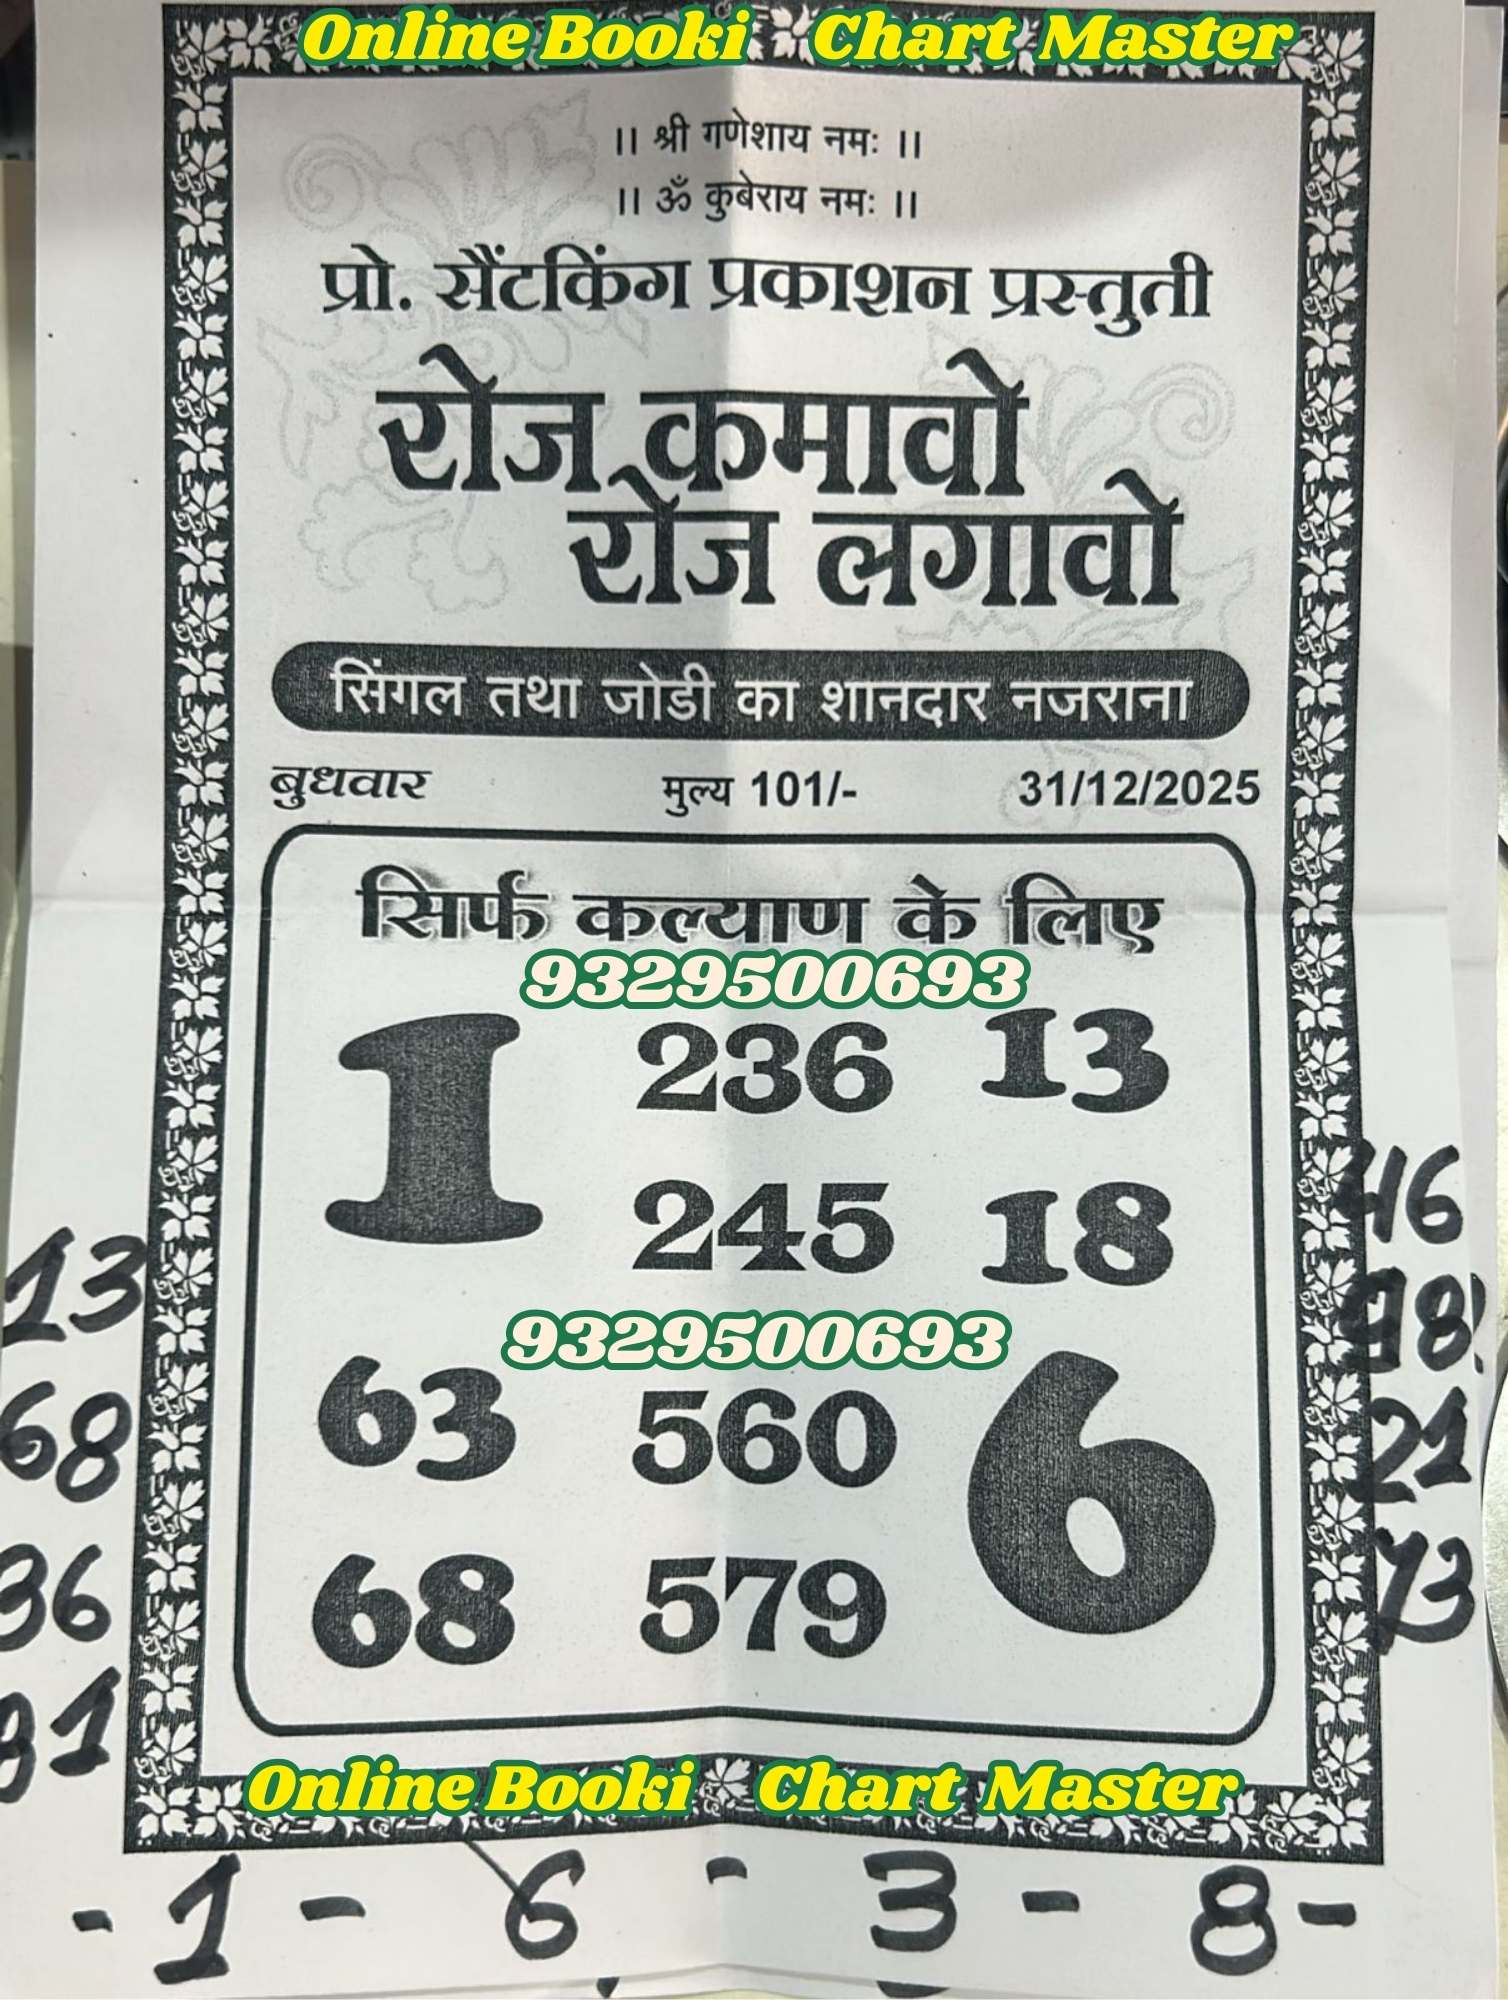 Online Booki Chart Master
।। श्री गणेशाय नमः ।।
।। ॐ कुबेराय नमः ।।
प्रो. सैंटकिंग प्रकाशन प्रस्तुती
रोज कमावो
रोज लगावो
सिंगल तथा जोडी का शानदार नजराना
बुधवार मुल्य 101/- 31/12/2025
सिर्फ कल्याण के लिए
9329500693
1 236 13
245 18
9329500693
63 560 6
68 579
13
68
36
31
46
98
21
73
Online Booki Chart Master
- 1 - 6 - 3 - 8 -